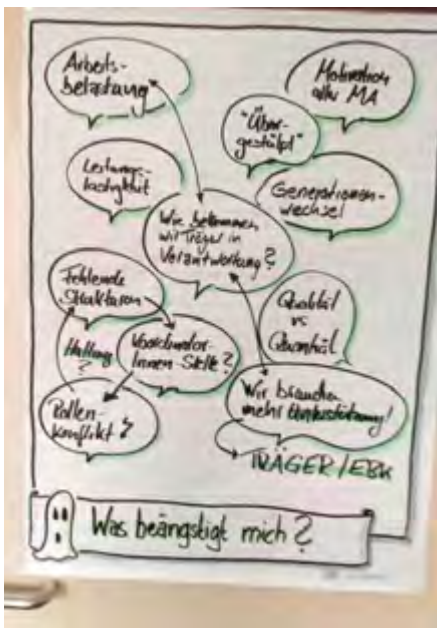 Arbeits-
belastung
Motivation
aller MA
"Über-
gestülpt"
Leitungs-
lastigkeit
Generationen-
wechsel
Wie bekommen
wir Träger in
Verantwortung?
Fehlende
Strukturen
Qualität
vs
Quantität
Haltung
?
Koordinator-
Innen-Stelle?
Wir brauchen
mehr Unterstützung!
Rollen-
konflikt?
TRÄGER/EBK
Was beängstigt mich?